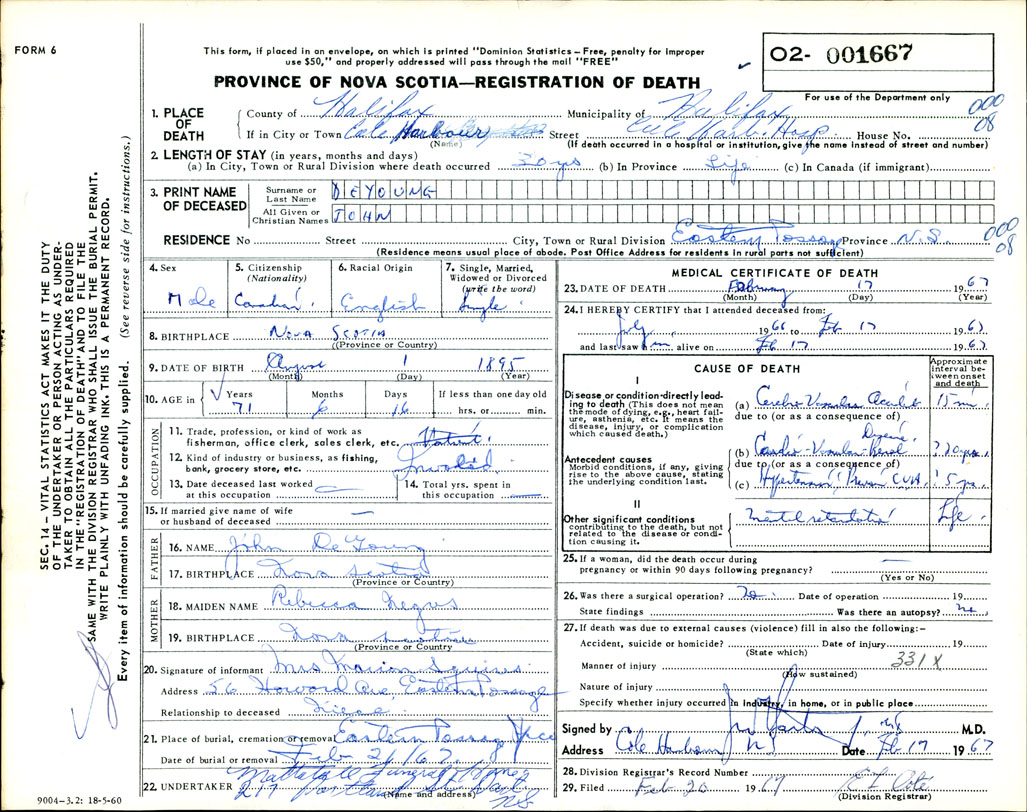 FORM 6
This form, if placed in an envelope, on which is printed "Dominion Statistics – Free, penalty for improper
use $50," and properly addressed will pass through the mail "FREE"
PROVINCE OF NOVA SCOTIA—REGISTRATION OF DEATH
O2- 001667
For use of the Department only
000
08
1. PLACE OF DEATH
County of Halifax Municipality of Halifax
If in City or Town Cole Harbour Street Cole Harb. Hosp House No.
(Name) (If death occurred in a hospital or institution, give the name instead of street and number)
2. LENGTH OF STAY (in years, months and days)
(a) In City, Town or Rural Division where death occurred 30 yrs (b) In Province Life (c) In Canada (if immigrant)
3. PRINT NAME OF DECEASED
Surname or Last Name DEYOUNG
All Given or Christian Names JOHN
RESIDENCE No Street City, Town or Rural Division Eastern Passage Province N.S.
000
08
(Residence means usual place of abode. Post Office Address for residents in rural parts not sufficient)
4. Sex Male
5. Citizenship (Nationality) Canadian
6. Racial Origin English
7. Single, Married, Widowed or Divorced (write the word) Single
8. BIRTHPLACE NOVA SCOTIA
(Province or Country)
9. DATE OF BIRTH August 1 1895
(Month) (Day) (Year)
10. AGE in Years 71 Months 6 Days 16 If less than one day old hrs. or min.
OCCUPATION
11. Trade, profession, or kind of work as
fisherman, office clerk, sales clerk, etc. Patient
12. Kind of industry or business, as fishing,
bank, grocery store, etc. Invalid
13. Date deceased last worked
at this occupation —
14. Total yrs. spent in
this occupation —
15. If married give name of wife
or husband of deceased —
FATHER
16. NAME John De Young
17. BIRTHPLACE Nova Scotia
(Province or Country)
MOTHER
18. MAIDEN NAME Rebecca Negus
19. BIRTHPLACE Nova Scotia
(Province or Country)
20. Signature of informant Mrs Marion Squires
Address 56 Howard Ave Eastern Passage
Relationship to deceased Niece
21. Place of burial, cremation or removal Eastern Passage
Date of burial or removal Feb 21/67
22. UNDERTAKER Mattatall Funeral Home
217 Portland St. Dart N.S.
(Name and address)
9004-3.2: 18-5-60
MEDICAL CERTIFICATE OF DEATH
23. DATE OF DEATH February 17 1967
(Month) (Day) (Year)
24. I HEREBY CERTIFY that I attended deceased from:
July 1966 to Feb 17 1967
and last saw him alive on Feb 17 1967
CAUSE OF DEATH
Approximate interval between onset and death
I
Disease or condition directly leading to death (This does not mean the mode of dying, e.g., heart failure, asthenia, etc. It means the disease, injury, or complication which caused death.)
(a) Cerebro-Vascular Accident 15 mi
due to (or as a consequence of)
Antecedent causes
Morbid conditions, if any, giving rise to the above cause, stating the underlying condition last.
(b) Cardio-Vascular-Renal Disease ? 20 yrs.
due to (or as a consequence of)
(c) Hypertension, Previous CVA ? 5 yrs
II
Other significant conditions
contributing to the death, but not related to the disease or condition causing it.
Mental retardation Life
25. If a woman, did the death occur during
pregnancy or within 90 days following pregnancy? —
(Yes or No)
26. Was there a surgical operation? No Date of operation 19
State findings Was there an autopsy? no
27. If death was due to external causes (violence) fill in also the following:—
Accident, suicide or homicide? Date of injury 19
(State which)
331X
Manner of injury
(How sustained)
Nature of injury
Specify whether injury occurred in industry, in home, or in public place
Signed by M.D.
Address Cole Harbour NS Date Feb 17 1967
28. Division Registrar's Record Number
29. Filed Feb 20 1967
(Division Registrar)
SEC. 14 – VITAL STATISTICS ACT MAKES IT THE DUTY
OF THE UNDERTAKER OR PERSON ACTING AS UNDER-
TAKER TO OBTAIN ALL THE PARTICULARS REQUIRED
IN THE "REGISTRATION OF DEATH" AND TO FILE THE
SAME WITH THE DIVISION REGISTRAR WHO SHALL ISSUE THE BURIAL PERMIT.
WRITE PLAINLY WITH UNFADING INK. THIS IS A PERMANENT RECORD.
Every item of information should be carefully supplied. (See reverse side for instructions.)